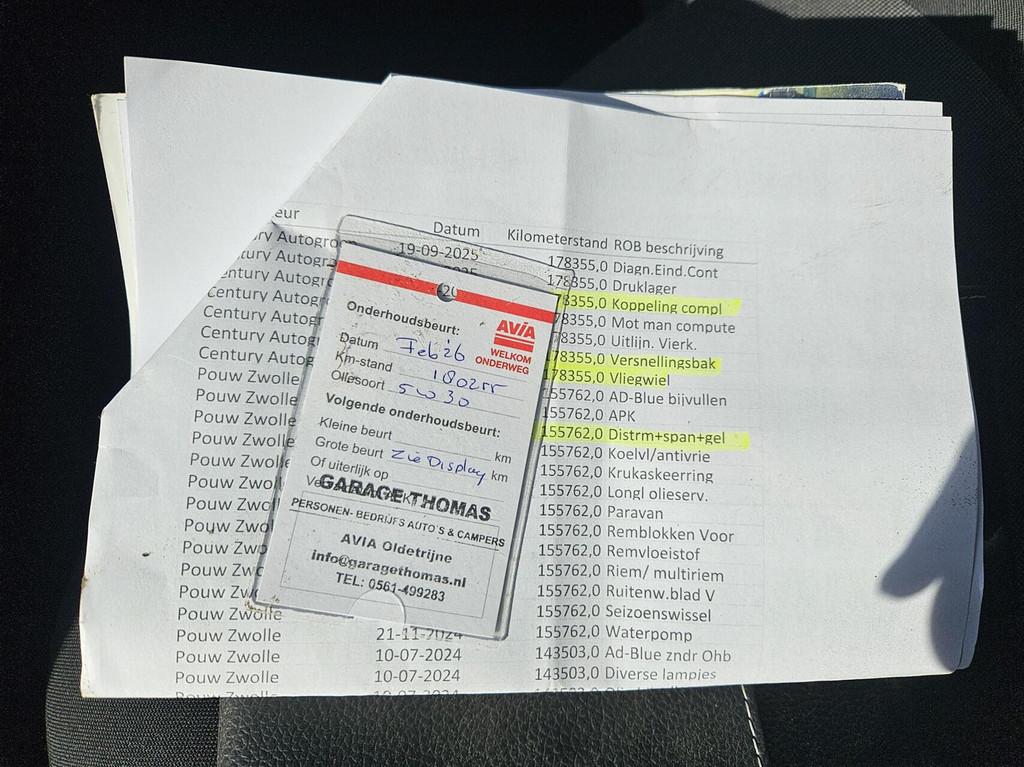 eur Datum Kilometerstand ROB beschrijving
ury Autogro 19-09-2025 178355,0 Diagn.Eind.Cont
entury Autogr 178355,0 Druklager
entury Autogr 78355,0 Koppeling compl
Century Autogr 78355,0 Mot man compute
Century Autogr 78355,0 Uitlijn. Vierk.
Century Autog 178355,0 Versnellingsbak
Century Autog 178355,0 Vliegwiel
Pouw Zwolle 155762,0 AD-Blue bijvullen
Pouw Zwolle 155762,0 APK
Pouw Zwolle 155762,0 Distrm+span+gel
Pouw Zwolle 155762,0 Koelvl/antivrie
Pouw Zwolle 155762,0 Krukaskeerring
Pouw Zwolle 155762,0 Longl olieserv.
Pouw Zwolle 155762,0 Paravan
Pouw Zwo 155762,0 Remblokken Voor
Pouw Zwo 155762,0 Remvloeistof
Pouw Zwo 155762,0 Riem/ multiriem
Pouw Zw 155762,0 Ruitenw.blad V
Pouw Zwolle 155762,0 Seizoenswissel
Pouw Zwolle 21-11-2024 155762,0 Waterpomp
Pouw Zwolle 10-07-2024 143503,0 Ad-Blue zndr Ohb
Pouw Zwolle 10-07-2024 143503,0 Diverse lampjes
Pouw Zwolle 10-07-2024
Onderhoudsbeurt:
AVIA
WELKOM
ONDERWEG
Datum Feb '26
Km-stand
Oliesoort 5W30
Volgende onderhoudsbeurt:
Kleine beurt km
Grote beurt Zie Display km
Of uiterlijk op
GARAGE THOMAS
PERSONEN- BEDRIJFS AUTO'S & CAMPERS
AVIA Oldetrijne
info@garagethomas.nl
TEL: 0561-499283